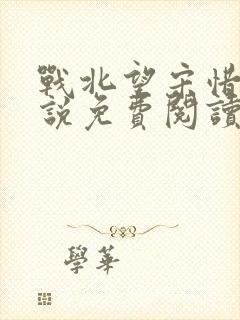 戰北望宋惜
說免費閱讀
學華